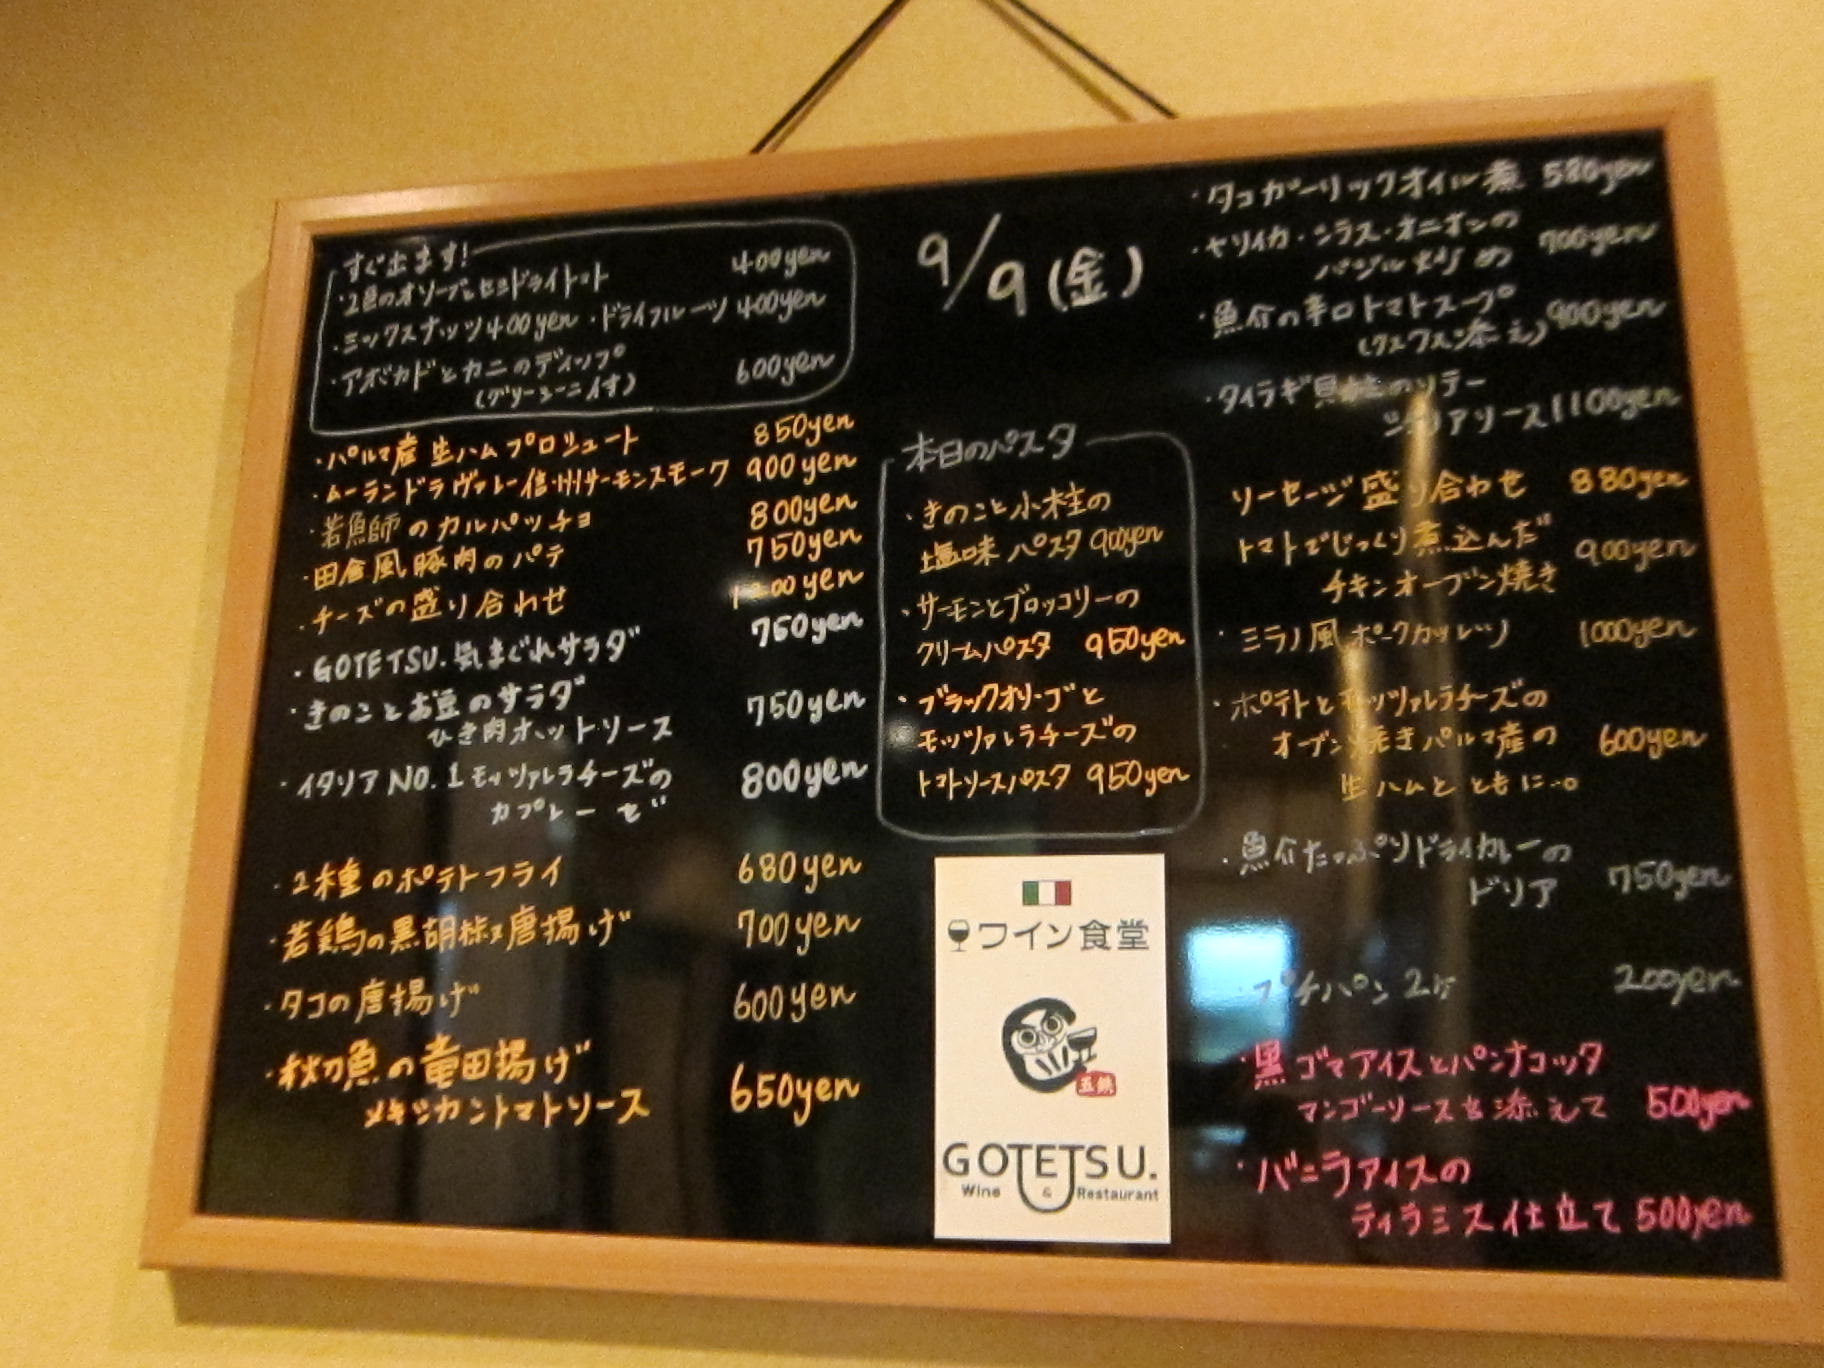 すぐ出ます!
・2色のオリーブとセミドライトマト 400yen
・ミックスナッツ400yen・ドライフルーツ 400yen
・アボカドとカニのディップ 600yen
(グリッシーニ付)
・パルマ産生ハムプロシュート 850yen
・ムーランドラヴァレー信州サーモンスモーク 900yen
・若魚師のカルパッチョ 800yen
・田舎風豚肉のパテ 750yen
・チーズの盛り合わせ
・GOTETSU.気まぐれサラダ 750yen
・きのことお豆のサラダ
ひき肉ホットソース 750yen
・イタリアNO.1モッツァレラチーズの
カプレーゼ 800yen
・2種のポテトフライ 680yen
・若鶏の黒胡椒唐揚げ 700yen
・タコの唐揚げ 600yen
・秋刀魚の竜田揚げ
メキシカントマトソース 650yen
9/9(金)
本日のパスタ
・きのこと小柱の
塩味パスタ 900yen
・サーモンとブロッコリーの
クリームパスタ 950yen
・ブラックオリーブと
モッツァレラチーズの
トマトソースパスタ 950yen
ワイン食堂
五鉄
GOTETSU.
Wine & Restaurant
・タコガーリックオイル煮 580yen
・ヤリイカ・シラス・オニオンの
バジル炒め 700yen
・魚介の辛口トマトスープ
(クスクス添え) 900yen
・タイラギ貝柱のソテー
シチリアソース 1100yen
ソーセージ盛り合わせ 880yen
トマトでじっくり煮込んだ
チキンオーブン焼き 900yen
・ミラノ風ポークカツレツ 1000yen
・ポテトとモッツァレラチーズの
オーブン焼きパルマ産の 600yen
生ハムとともに…。
・魚介たっぷりドライカレーの
ドリア 750yen
・プチパン2ヶ 200yen
・黒ゴマアイスとパンナコッタ
マンゴーソースを添えて 500yen
・バニラアイスの
ティラミス仕立て 500yen